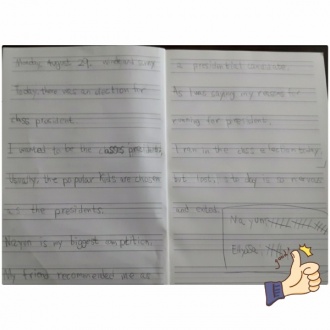 Monday, August 29,
Today, there was an election for
class president.
I wanted to be the classes president,
Usually, the popular kids are chosen
as the presidents.
is my biggest competition.
My friend recommended me as
a presidential candidate
As I was saying my reasons for
running for president,
I ran in the class election today,
but lost, to day is so
and
good!